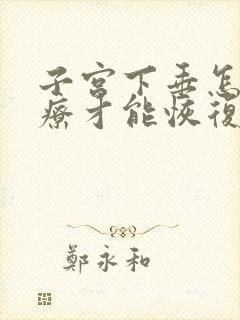 子宫下垂怎
療才能恢復
鄭永和